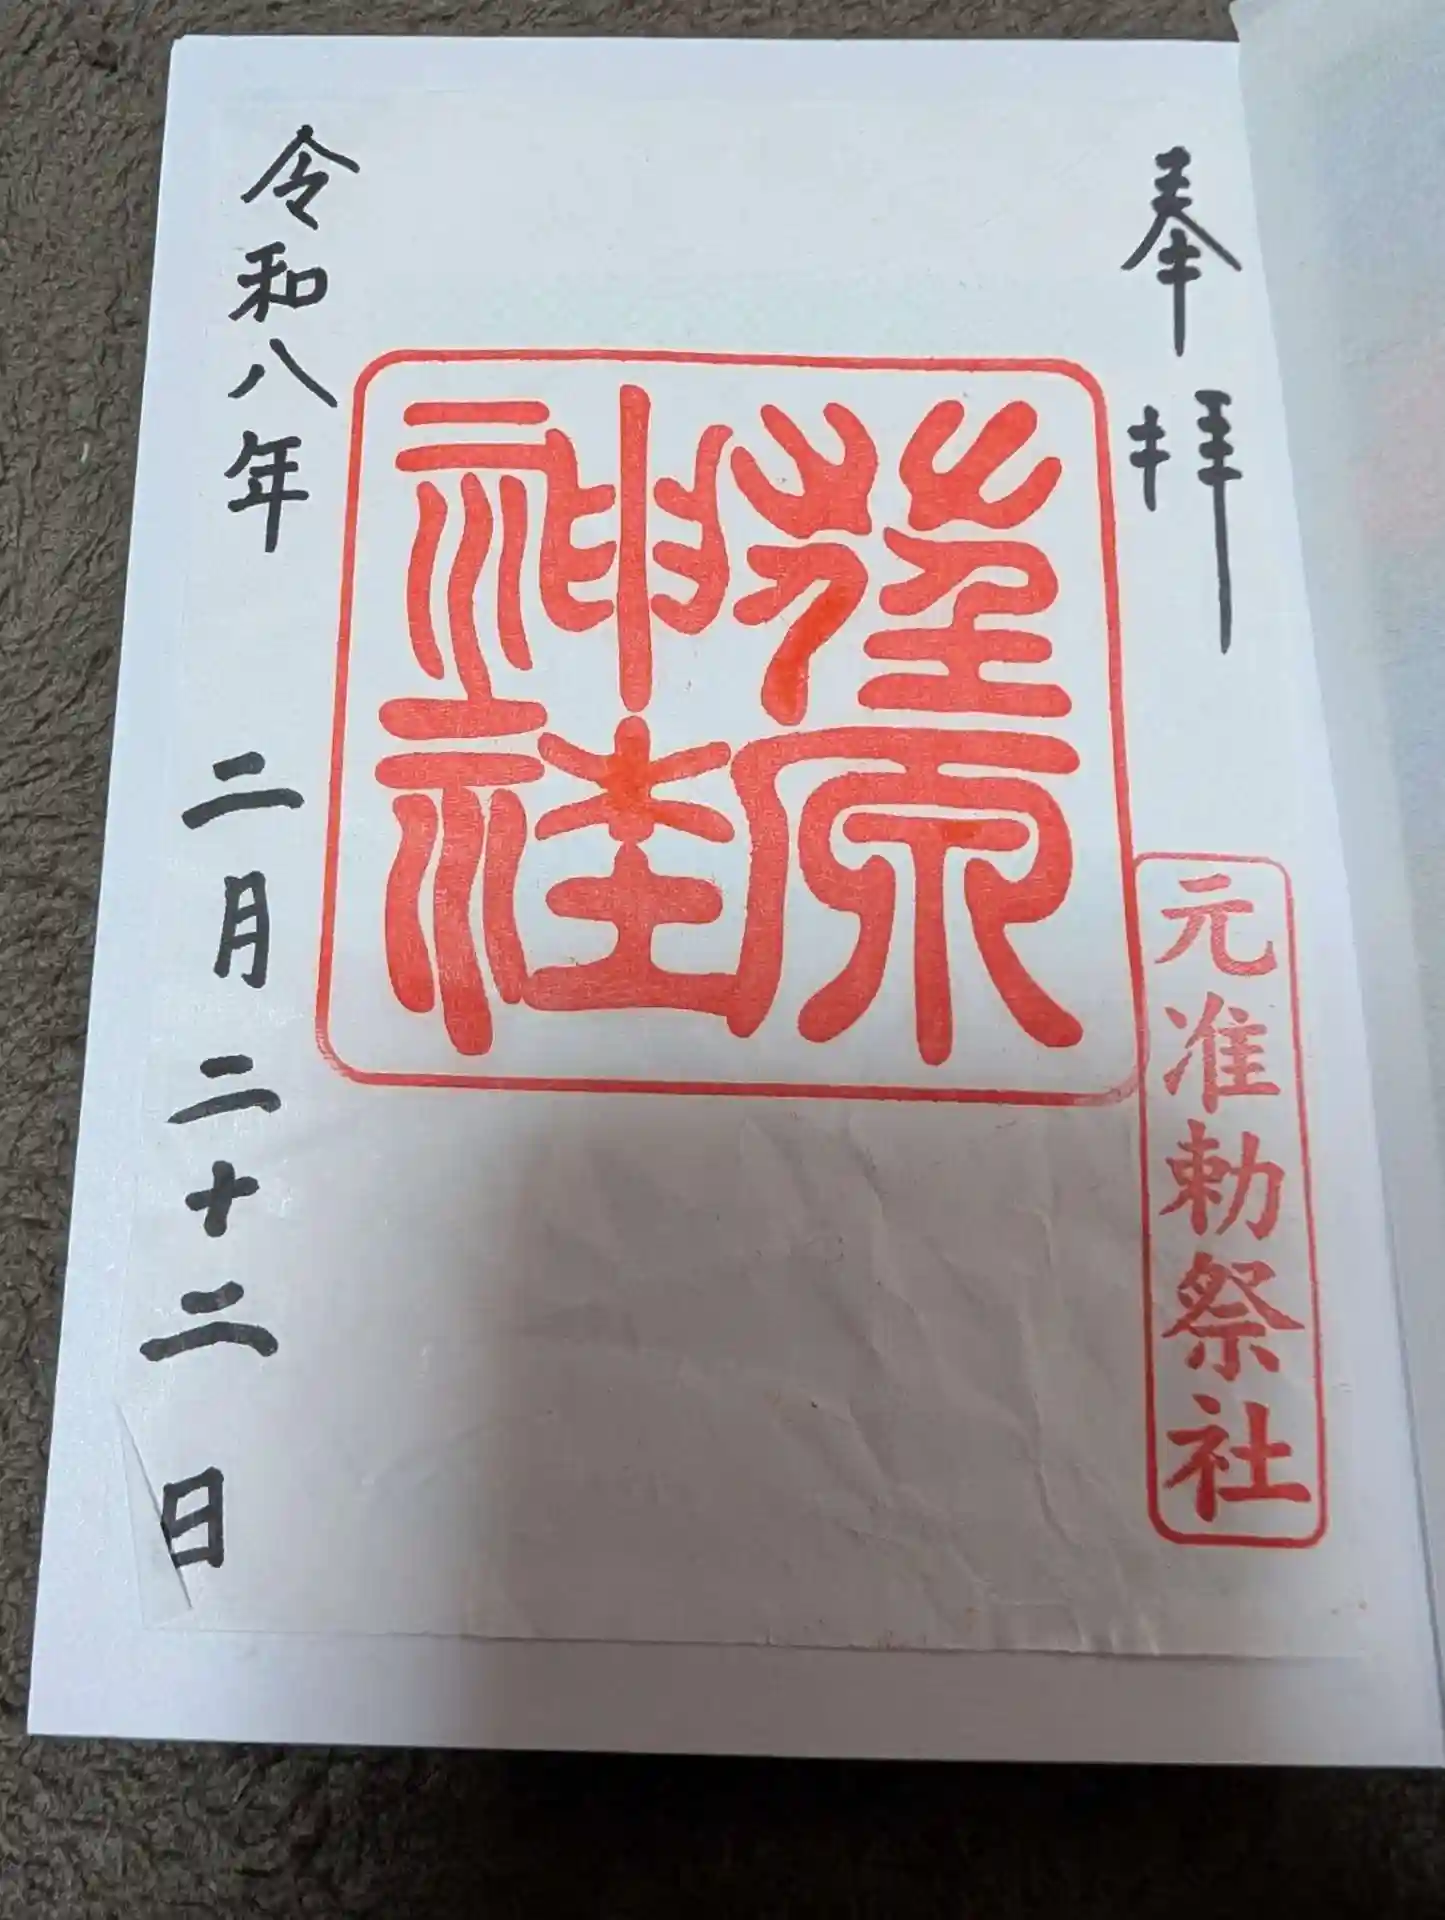 奉拝
元准勅祭社
荏原
神社
令和八年 二月二十二日